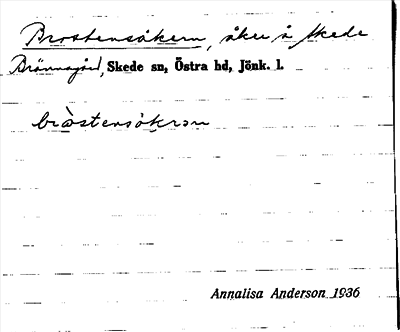 Brostensåkern, åker å Skede
Brännagård, Skede sn, Östra hd, Jönk. l.
bròstensòkren
Annalisa Anderson 1936